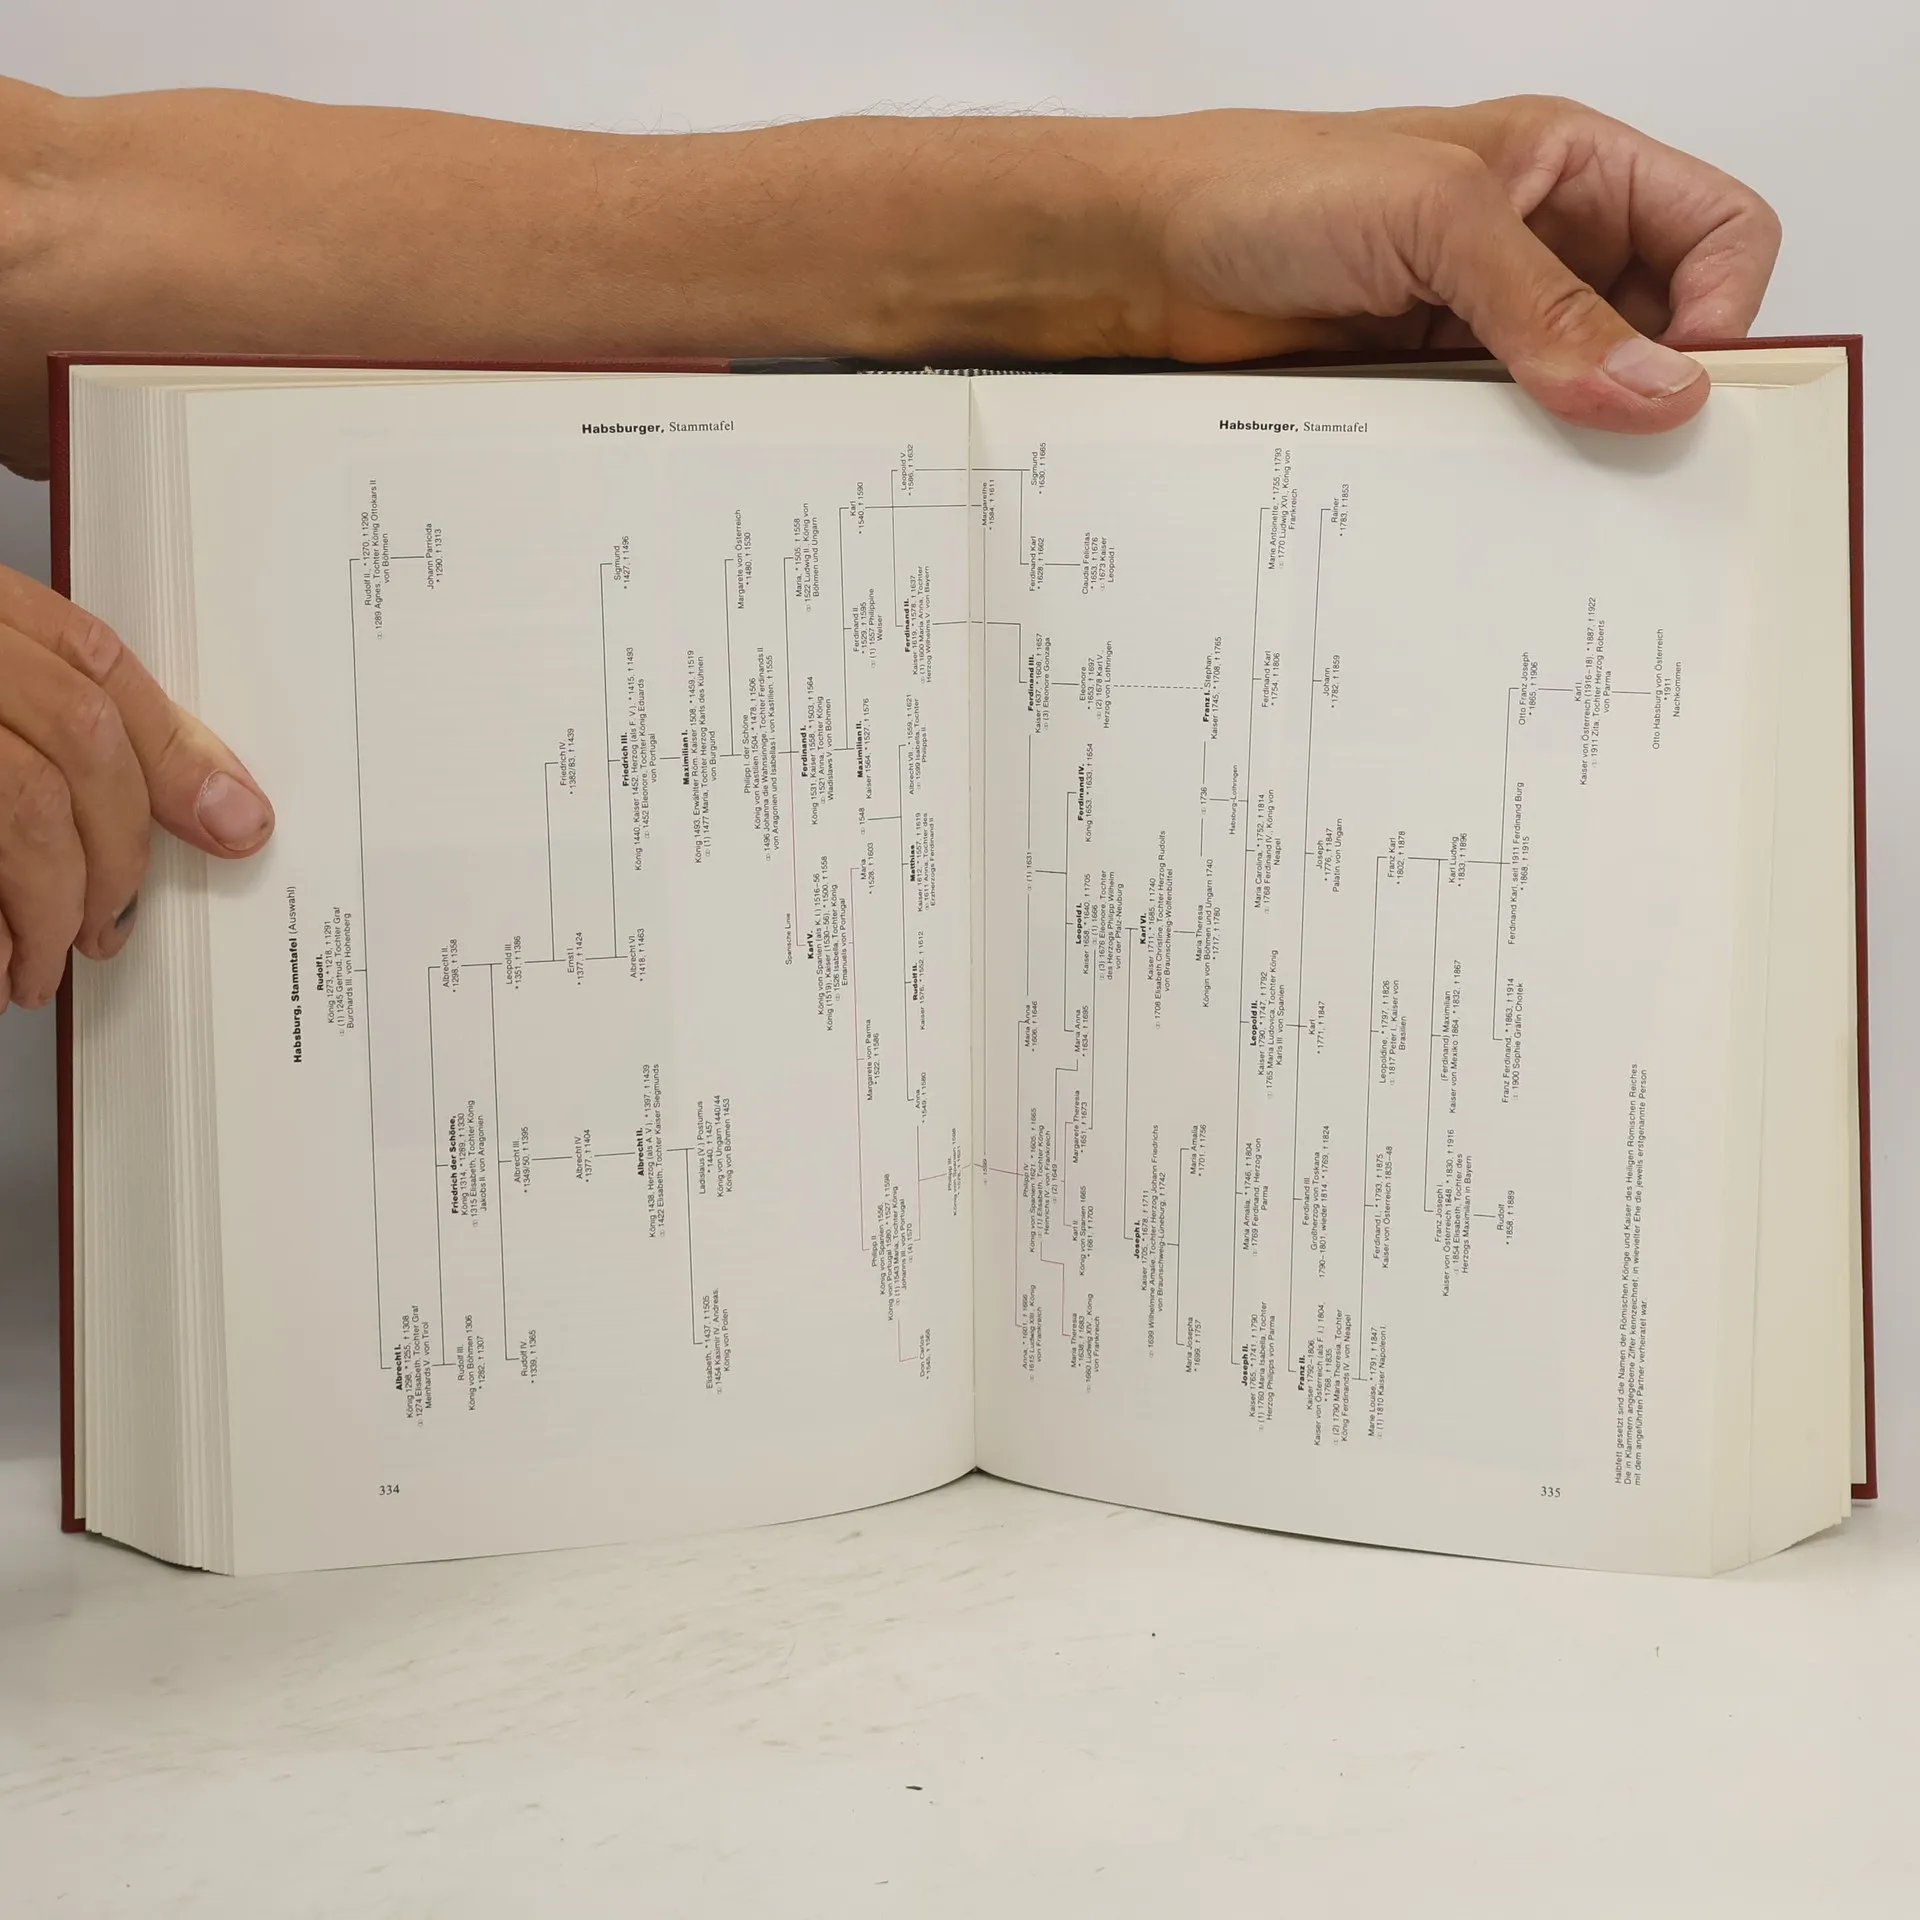 Habsburger, Stammtafel
Habsburg, Stammtafel (Auswahl)
Rudolf I.
König 1273, *1218, †1291
⚭ (1) 1245 Gertrud, Tochter Graf
Burchards III. von Hohenberg
Albrecht I.
König 1298, *1255, †1308
⚭ 1274 Elisabeth, Tochter Graf
Meinhards V. von Tirol
Rudolf II., *1270, †1290
⚭ 1289 Agnes, Tochter König Ottokars II.
von Böhmen
Rudolf III.
König von Böhmen 1306
*1282, †1307
Friedrich der Schöne,
König 1314, *1289, †1330
⚭ 1315 Elisabeth, Tochter König
Jakobs II. von Aragonien
Albrecht II.
*1298, †1358
Johann Parricida
*1290, †1313
Rudolf IV.
*1339, †1365
Albrecht III.
*1349/50, †1395
Leopold III.
*1351, †1386
Albrecht IV.
*1377, †1404
Ernst I.
*1377, †1424
Friedrich IV.
*1382/83, †1439
Albrecht II.
König 1438, Herzog (als A. V.), *1397, †1439
⚭ 1422 Elisabeth, Tochter Kaiser Siegmunds
Albrecht VI.
*1418, †1463
Friedrich III.
König 1440, Kaiser 1452, Herzog (als F. V.), *1415, †1493
⚭ 1452 Eleonore, Tochter König Eduards
von Portugal
Sigmund
*1427, †1496
Elisabeth, *1437, †1505
⚭ 1454 Kasimir IV. Andreas,
König von Polen
Ladislaus (V.) Postumus
*1440, †1457
König von Ungarn 1440/44
König von Böhmen 1453
Maximilian I.
König 1493, Erwählter Röm. Kaiser 1508, *1459, †1519
⚭ (1) 1477 Maria, Tochter Herzog Karls des Kühnen
von Burgund
Philipp I. der Schöne
König von Kastilien 1504, *1478, †1506
⚭ 1496 Johanna die Wahnsinnige, Tochter Ferdinands II.
von Aragonien und Isabellas I. von Kastilien, †1555
Margarete von Österreich
*1480, †1530
Spanische Linie
Karl V.
König von Spanien (als K. I.) 1516–56
König (1519), Kaiser (1530–56), *1500, †1558
⚭ 1526 Isabella, Tochter König
Emanuels von Portugal
Ferdinand I.
König 1531, Kaiser 1558, *1503, †1564
⚭ 1521 Anna, Tochter König
Wladislaws V. von Böhmen
Maria, *1505, †1558
⚭ 1522 Ludwig II., König von
Böhmen und Ungarn
Philipp II.
König von Spanien 1556,
König von Portugal 1580, *1527, †1598
⚭ (1) 1543 Maria, Tochter König
Johanns III. von Portugal
⚭ (4) 1570
Margarete von Parma
*1522, †1586
Maria
*1528, †1603
⚭ 1548
Maximilian II.
Kaiser 1564, *1527, †1576
Ferdinand II.
*1529, †1595
⚭ (1) 1557 Philippine
Welser
Karl
*1540, †1590
Don Carlos
*1545, †1568
Anna
*1549, †1580
Rudolf II.
Kaiser 1576, *1552, †1612
Matthias
Kaiser 1612, *1557, †1619
⚭ 1611 Anna, Tochter des
Erzherzogs Ferdinand II.
Albrecht VII., *1559, †1621
⚭ 1599 Isabella, Tochter
Philipps II.
Ferdinand II.
Kaiser 1619, *1578, †1637
⚭ (1) 1600 Maria Anna, Tochter
Herzog Wilhelms V. von Bayern
Leopold V.
*1586, †1632
Philipp III.
334
Habsburger, Stammtafel
⚭ 1599
Margarethe
*1584, †1611
Anna, *1601, †1666
⚭ 1615 Ludwig XIII., König
von Frankreich
Philipp IV.
König von Spanien 1621, *1605, †1665
⚭ (1) Elisabeth, Tochter König
Heinrichs IV. von Frankreich
⚭ (2) 1649
Maria Anna
*1606, †1646
⚭ (1) 1631
Ferdinand III.
Kaiser 1637, *1608, †1657
⚭ (3) Eleonore Gonzaga
Ferdinand Karl
*1628, †1662
Sigmund
*1630, †1665
Maria Theresia
*1638, †1683
⚭ 1660 Ludwig XIV., König
von Frankreich
Karl II.
König von Spanien 1665
*1661, †1700
Margarete Theresia
*1651, †1673
Maria Anna
*1634, †1696
Leopold I.
Kaiser 1658, *1640, †1705
⚭ (1) 1666
⚭ (3) 1676 Eleonore, Tochter
des Herzogs Philipp Wilhelm
von der Pfalz-Neuburg
Ferdinand IV.
König 1653, *1633, †1654
Eleonore
*1653, †1697
⚭ (2) 1678 Karl V.,
Herzog von Lothringen
Claudia Felicitas
*1653, †1676
⚭ 1673 Kaiser
Leopold I.
Joseph I.
Kaiser 1705, *1678, †1711
⚭ 1699 Wilhelmine Amalie, Tochter Herzog Johann Friedrichs
von Braunschweig-Lüneburg, †1742
Karl VI.
Kaiser 1711, *1685, †1740
⚭ 1708 Elisabeth Christine, Tochter Herzog Rudolfs
von Braunschweig-Wolfenbüttel
Maria Josepha
*1699, †1757
Maria Amalia
*1701, †1756
Maria Theresia
Königin von Böhmen und Ungarn 1740
*1717, †1780
⚭ 1736
Franz I. Stephan
Kaiser 1745, *1708, †1765
Habsburg-Lothringen
Joseph II.
Kaiser 1765, *1741, †1790
⚭ (1) 1760 Maria Isabella, Tochter
Herzog Philipps von Parma
Maria Amalia, *1746, †1804
⚭ 1769 Ferdinand, Herzog von
Parma
Leopold II.
Kaiser 1790, *1747, †1792
⚭ 1765 Maria Ludovica, Tochter König
Karls III. von Spanien
Maria Carolina, *1752, †1814
⚭ 1768 Ferdinand IV., König von
Neapel
Ferdinand Karl
*1754, †1806
Marie Antoinette, *1755, †1793
⚭ 1770 Ludwig XVI., König von
Frankreich
Franz II.
Kaiser 1792–1806
Kaiser von Österreich (als F. I.) 1804,
*1768, †1835
⚭ (2) 1790 Maria Theresia, Tochter
König Ferdinands IV. von Neapel
Ferdinand III.
Großherzog von Toskana
1790–1801, wieder 1814, *1769, †1824
Karl
*1771, †1847
Joseph
*1776, †1847
Palatin von Ungarn
Johann
*1782, †1859
Rainer
*1783, †1853
Marie Louise, *1791, †1847
⚭ (1) 1810 Kaiser Napoleon I.
Ferdinand I., *1793, †1875
Kaiser von Österreich 1835–48
Leopoldine, *1797, †1826
⚭ 1817 Peter I., Kaiser von
Brasilien
Franz Karl
*1802, †1878
Franz Joseph I.
Kaiser von Österreich 1848, *1830, †1916
⚭ 1854 Elisabeth, Tochter des
Herzogs Maximilian in Bayern
(Ferdinand) Maximilian
Kaiser von Mexiko 1864, *1832, †1867
Karl Ludwig
*1833, †1896
Rudolf
*1858, †1889
Franz Ferdinand, *1863, †1914
⚭ 1900 Sophie Gräfin Chotek
Ferdinand Karl, seit 1911 Ferdinand Burg
*1868, †1915
Otto Franz Joseph
*1865, †1906
Karl I.
Kaiser von Österreich (1916–18), *1887, †1922
⚭ 1911 Zita, Tochter Herzog Roberts
von Parma
Otto Habsburg von Österreich
*1911
Nachkommen
Halbfett gesetzt sind die Namen der Römischen Könige und Kaiser des Heiligen Römischen Reiches
Die in Klammern angegebene Ziffer kennzeichnet, in wievielter Ehe die jeweils erstgenannte Person
mit dem angeführten Partner verheiratet war.
335